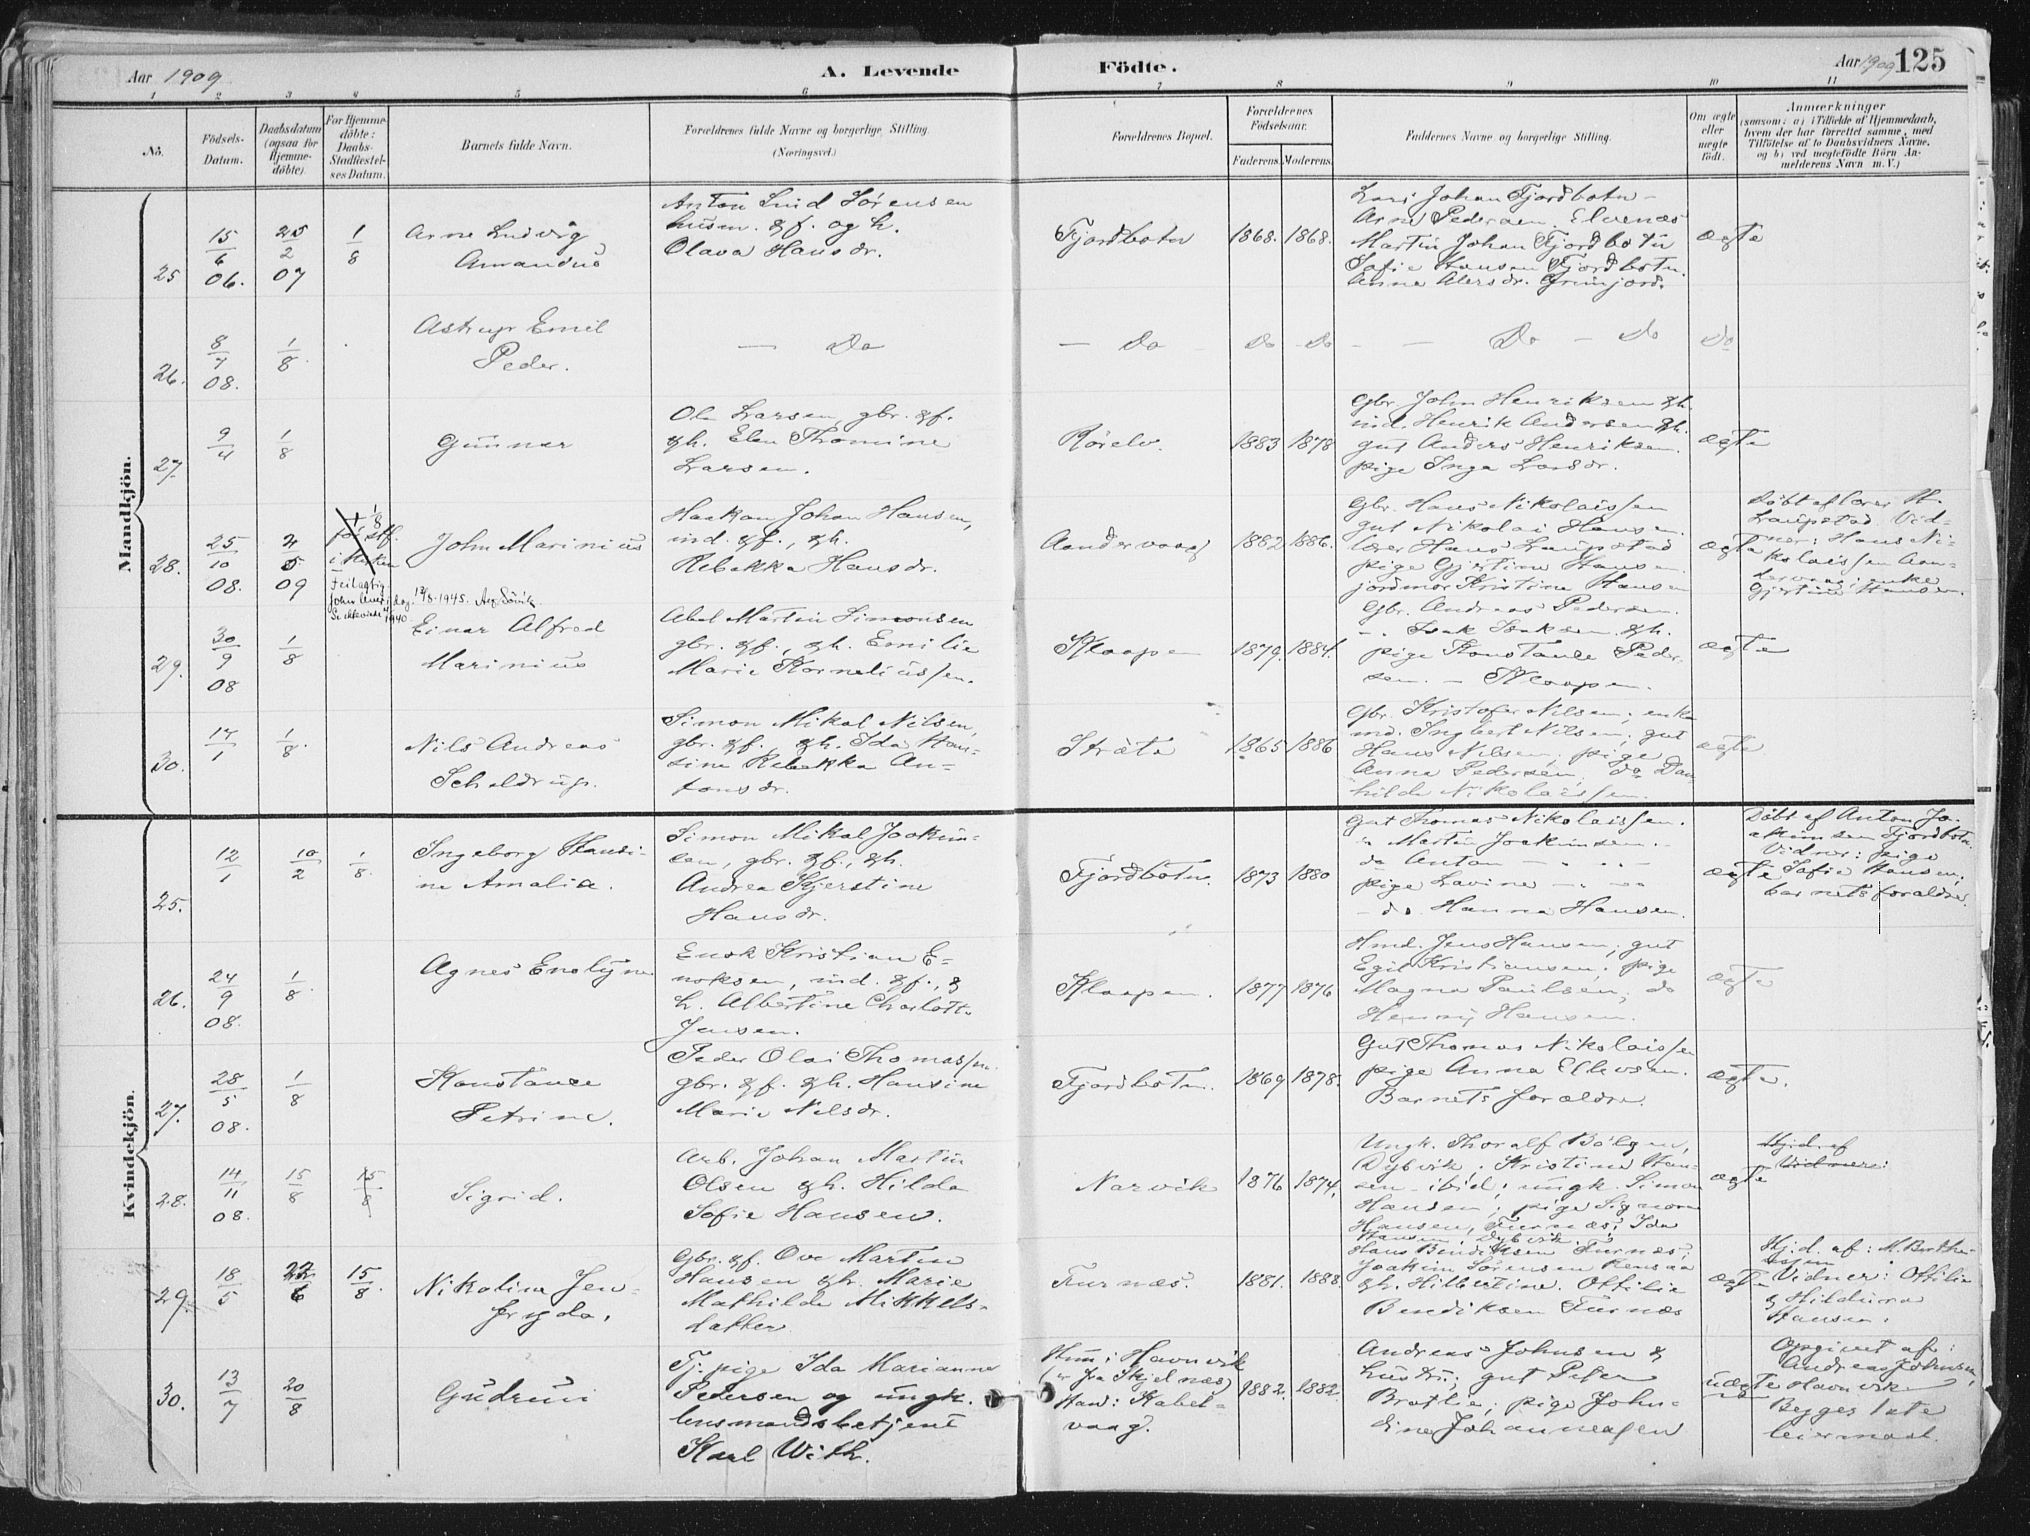 Aar 1909
A. Levende
Födte.
Aar 1909 125
1 2 3 4 5 6 7 8 9 10 11
No.
Födsels-
Datum.
Daabsdatum
(ogsaa for
Hjemme-
döbte).
For Hjemme-
döbte:
Daabs-
Stadfæstel-
ses Datum.
Barnets fulde Navn.
Forældrenes fulde Navne og borgerlige Stilling.
(Næringsvei.)
Forældrenes Bopæl.
Forældrenes
Födselsaar.
Faderens. Moderens.
Faddernes Navne og borgerlige Stilling.
Om ægte
eller
uægte
født.
Anmærkninger
(saasom: a) i Tilfælde af Hjemmedaab,
hvem der har forrettet samme, med
Tilföielse af to Daabsvidners Navne,
og b) ved uægtefödte Börn An-
melderens Navn m. V.)
Mandkjön.
25
15/6 06.
25/2 07
1/8
Arne Ludvig
Amandus
Anton Lind Sørensen
husm. & f. og h.
Olava Hansdr.
Fjordbotn
1868. 1868.
Lars Johan Fjordbotn -
Arne Pedersen Elvenæs
Martin Johan Fjordbotn
Sofie Hansen Fjordbotn.
Anna Olersdr. Grinjord.
ægte
26.
8/7 08.
1/8
Astrup Emil
Peder.
— Do
— Do
Do Do
- - Do - Do
Do
27.
9/4
1/8
Gunnar
Ole Larsen, gbr. & f.
& h. Elen Thomine
Larsen.
Rørelv.
1883 1878
Gbr. John Henriksen & h.
ind. Henrik Andersen & h.
gut Anders Henriksen.
pige Inga Larsdr.
ægte
28.
25/10 08.
2/5 09
+ 1/8
for stf.
i kirken
Feilagtig.
John lever i dag. 13/8-1945.
1940
John Marinius
Haakon Johan Hansen,
ind. & f., & h.
Rebekka Hansdr.
Aandervaag
1882 1886.
Gbr. Hans Nikolaissen
gut Nikolai Hansen.
lærer Hans Laupstad
pige Gjertine Hansen.
jordmor Kristine Hansen
ægte
Døbt af lærer H.
Laupstad. Vid-
ner: Hans Ni-
kolaissen Aan-
dervaag; enke
Gjertine Hansen.
29.
30/9 08
1/8
Einar Alfred
Marinius
Abel Martin Simonsen
gbr. & f., & h. Emilie
Marie Korneliussen.
Klaapen
1879. 1884.
Gbr. Andreas Pedersen.
-. Isak Isaksen & h.
pige Konstanse Peder-
sen. — Klaapen.
ægte
30.
17/1
1/8.
Nils Andreas
Scheldrup.
Simon Mikal Nilsen,
gbr. & f. & h. Ida Han-
sine Rebekka An-
tonsdr.
Stræte
1865 1886
Gbr. Kristofer Nilsen; enkem.
ind. Ingbert Nilsen; gut
Hans Nilsen; pige
Anna Pedersen; do Dan-
hilde Nikolaissen.
ægte
Kvindekjön.
25.
12/1
10/2
1/8.
Ingeborg Hansi-
ne Amalia.
Simon Mikal Joakim-
sen, gbr. & f., & h.
Andrea Kjerstine
Hansdr.
Fjordbotn.
1873 1880
Gut Thomas Nikolaissen.
" Martin Joakimsen.
do Anton — " —
pige Lavine — " —
- do. Hanna Hansen.
ægte
Døbt af Anton Jo-
akimsen Fjordbotn.
Vidner: pige
Sofie Hansen;
barnets forældre.
26.
24/9 08.
1/8.
Agnes Enolyne
Enok Kristian E-
noksen, ind. & f., &
h. Albertine Charlotte
Jensen.
Klaapen.
1877 1876
Hmd. Jens Hansen; gut
Egil Kristiansen; pige
Magna Paulsen; do
Henny Hansen.
ægte
27.
28/5 08.
1/8
Konstanse
Petrine.
Peder Olai Thomassen.
gbr. & f. & h. Hansine
Marie Nilsdr.
Fjordbotn.
1869 1878.
Gut Thomas Nikolaissen
pige Anna Ellevsen.
Barnets forældre.
ægte.
28.
14/11 08.
15/8
15/8
Sigrid.
Arb. Johan Martin
Olsen & h. Hilda
Sofie Hansen.
Narvik
1876 1874.
Ungk. Thoralf Bølgen,
Dybvik; Kristine Han-
sen - ibid; ungk. Simon
Hansen; pige Signora
Hansen, Furnæs; Ida
Hansen, Dybvik.
ægte
Hjd. af
Vidnere:
29.
18/5
22/6
15/8.
Nikoline Jen-
fryda.
Gbr. & f. Ove Martin
Hansen & h. Marie
Mathilde Mikkels-
datter
Furnæs.
1881. 1888.
Hans Bendiksen Furnæs;
Joakim Sørensen Rensaa
& h. Hilbertine. Ottilie
Bendiksen Furnæs
ægte
Hj. d. af: M. Berthe-
ussen
Vidner: Ottilie
& Hilduma
Hansen.
30.
13/7
20/8
Gudrun
Tj. pige Ida Marianne
Pedersen og ungk.
lensmandsbetjent
Karl With.
Hun: i Havnvik
(er fra Skjelnæs)
Han: Kabel-
vaag.
1882. 1882.
Andreas Johnsen &
hustru; gut Peter
Brotlie; pige John-
sine Johannessen
uægte
Opgivet af:
Andreas Johnsen,
Havnvik
Begges 1ste
leiermaal.